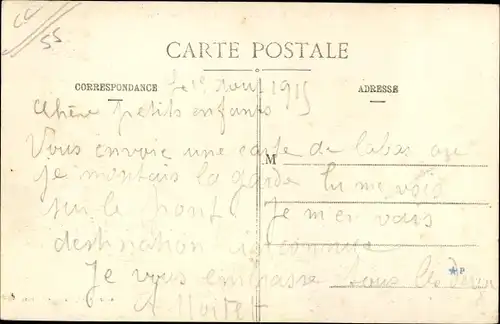 55
CARTE POSTALE
CORRESPONDANCE
ADRESSE
Le 1er 1915
Chère petits enfants
Vous envoie une carte de labas que
M
je montais la garde tu me vois
sur le pont Je m'en vais
destination inconnue
Je vous embrasse tous les deux